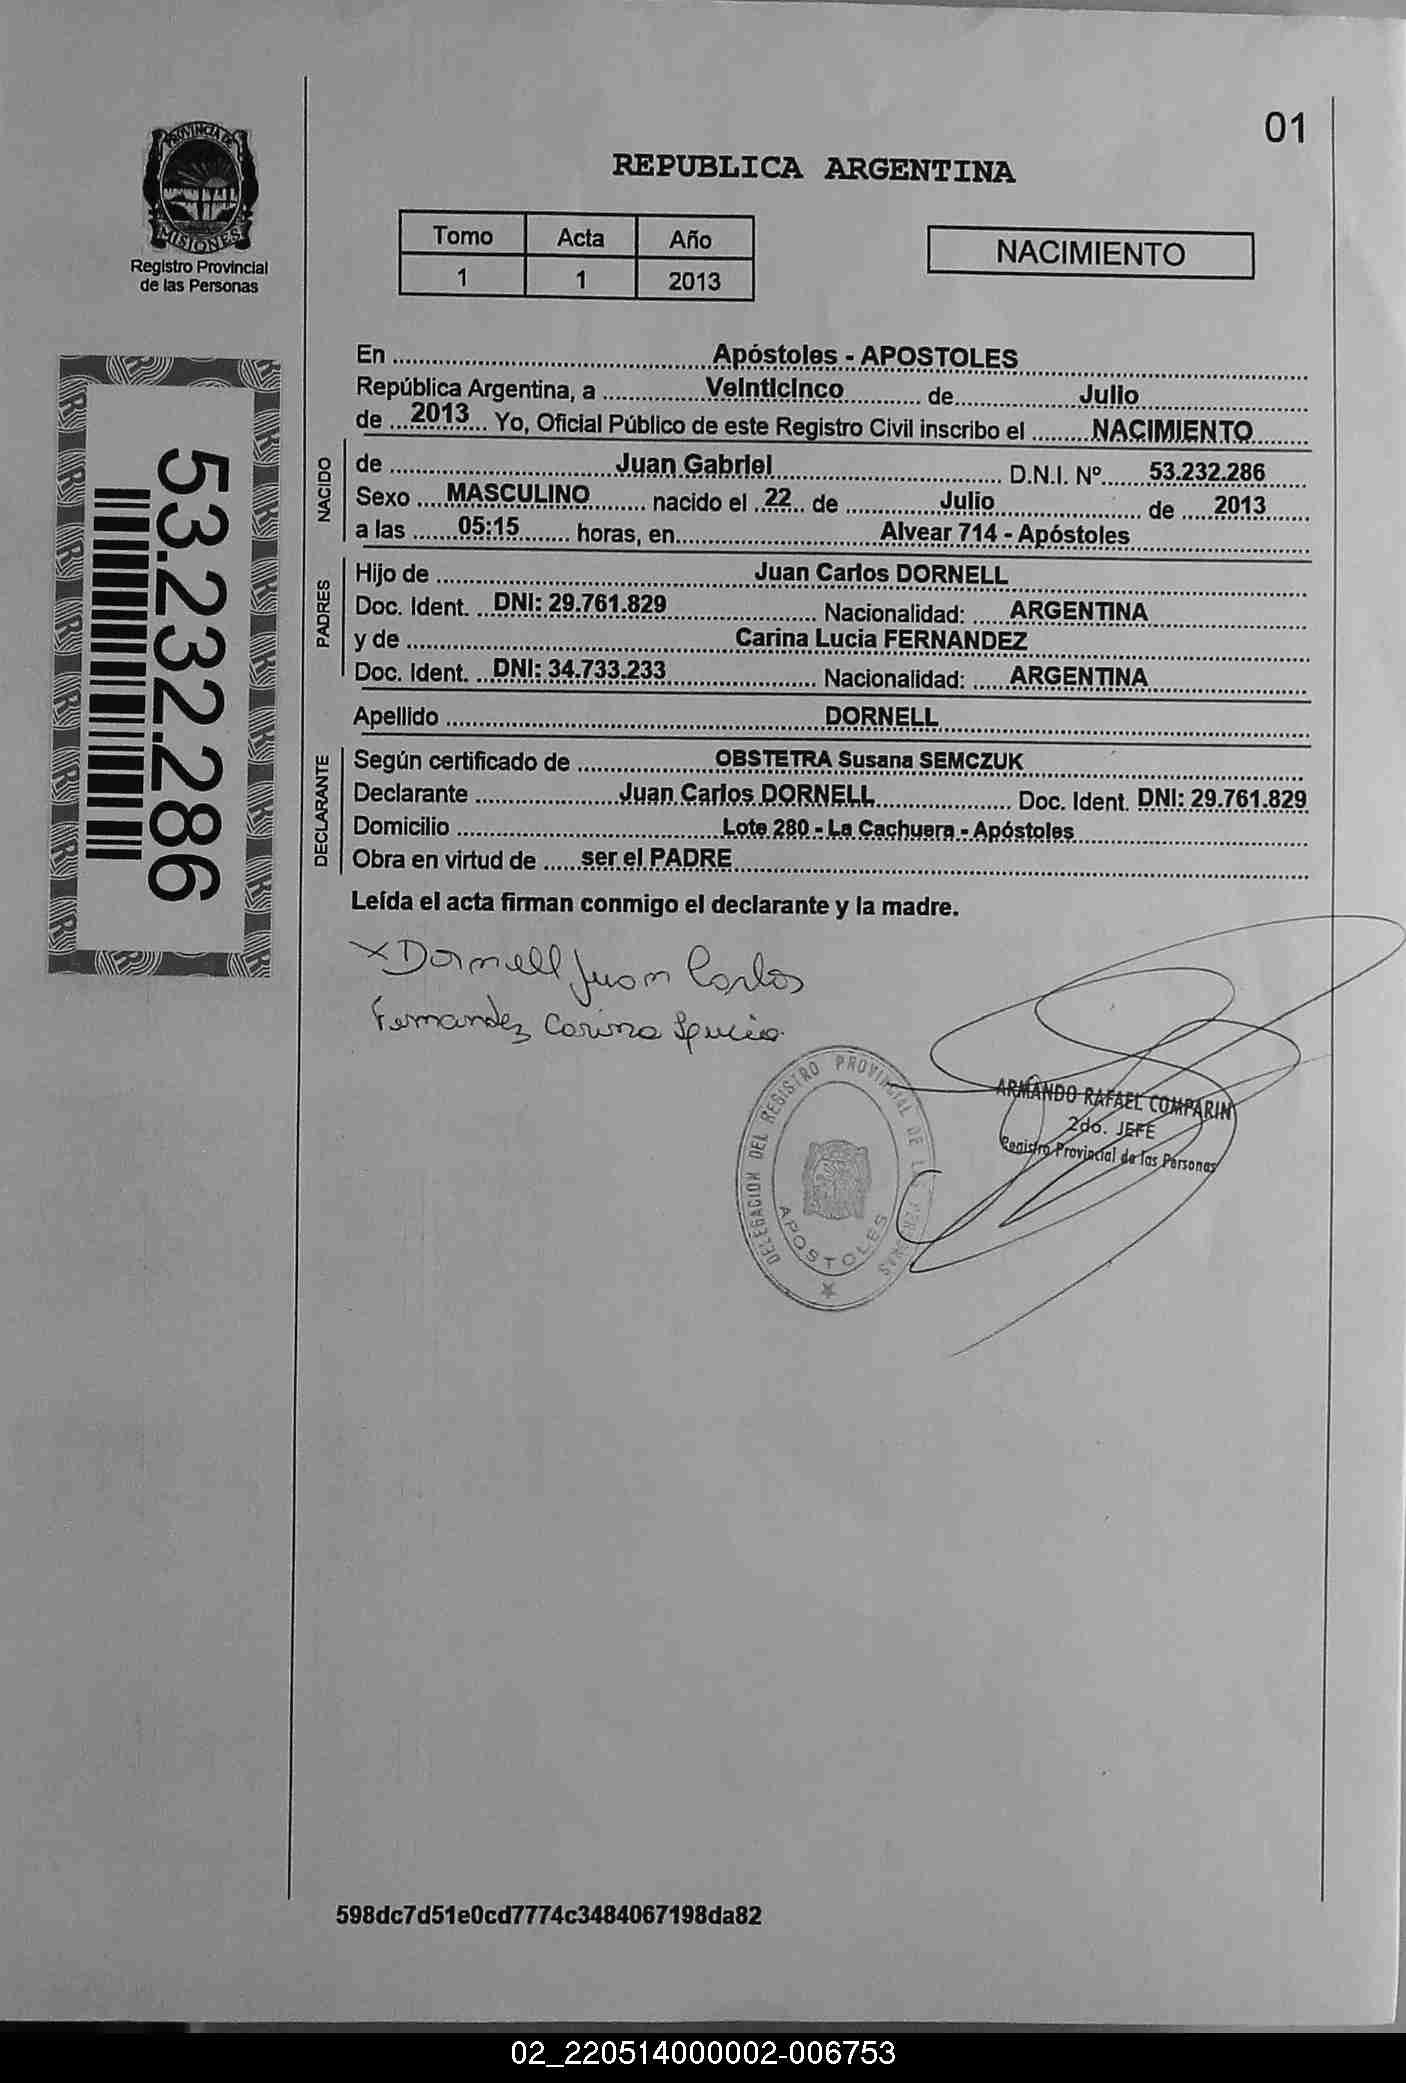 01
REPUBLICA ARGENTINA
PROVINCIA DE
MISIONES
Registro Provincial
de las Personas
Tomo Acta Año
1 1 2013
NACIMIENTO
En ........ Apóstoles - APOSTOLES
República Argentina, a ........ Veinticinco ........ de ........ Julio
de ... 2013 ... Yo, Oficial Público de este Registro Civil inscribo el ........ NACIMIENTO
NACIDO
de ........ Juan Gabriel ........ D.N.I. Nº ....... 53.232.286
Sexo .... MASCULINO ........ nacido el .22.. de ........ Julio ........ de .... 2013
a las ....... 05:15 ........ horas, en ........ Alvear 714 - Apóstoles
PADRES
Hijo de ........ Juan Carlos DORNELL
Doc. Ident. .. DNI: 29.761.829 ........ Nacionalidad: ..... ARGENTINA
y de ........ Carina Lucia FERNANDEZ
Doc. Ident. .. DNI: 34.733.233 ........ Nacionalidad: ..... ARGENTINA
Apellido ........ DORNELL
DECLARANTE
Según certificado de ........ OBSTETRA Susana SEMCZUK
Declarante ........ Juan Carlos DORNELL ........ Doc. Ident. DNI: 29.761.829
Domicilio ........ Lote 280 - La Cachuera - Apóstoles
Obra en virtud de ..... ser el PADRE
Leída el acta firman conmigo el declarante y la madre.
x Dornell Juan Carlos
Fernandez Carina Lucia
DELEGACION DEL REGISTRO PROVINCIAL DE LAS PERSONAS
APOSTOLES
ARMANDO RAFAEL COMPARIN
2do. JEFE
Registro Provincial de las Personas
53.232.286
598dc7d51e0cd7774c3484067198da82
02_220514000002-006753